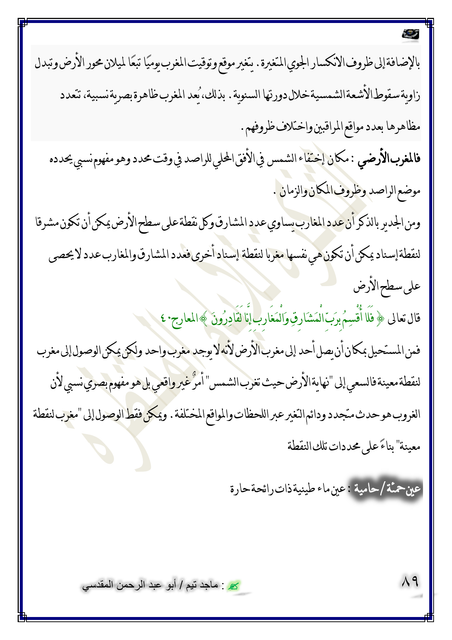 بالإضافة إلى ظروف الانكسار الجوي المتغيرة . يتغير موقع وتوقيت المغرب يوميًا تبعًا لميلان محور الأرض وتبدل
زاوية سقوط الأشعة الشمسية خلال دورتها السنوية . بذلك، يُعد المغرب ظاهرة بصرية نسبية، تتعدد
مظاهرها بعدد مواقع المراقبين واختلاف ظروفهم .
فالمغرب الأرضي : مكان إختفاء الشمس في الأفق المحلي للراصد في وقت محدد وهو مفهوم نسبي يحدده
موضع الراصد وظروف المكان والزمان .
ومن الجدير بالذكر أن عدد المغارب يساوي عدد المشارق وكل نقطة على سطح الأرض يمكن أن تكون مشرقا
لنقطة إسناد يمكن أن تكون هي نفسها مغربا لنقطة إسناد أخرى فعدد المشارق والمغارب عدد لا يحصى
على سطح الأرض
قال تعالى ﴿ فَلَا أُقْسِمُ بِرَبِّ الْمَشَارِقِ وَالْمَغَارِبِ إِنَّا لَقَادِرُونَ ﴾ المعارج٤٠
فمن المستحيل بمكان أن يصل أحد إلى مغرب الأرض لأنه لا يوجد مغرب واحد ولكن يمكن الوصول إلى مغرب
لنقطة معينة فالسعي إلى "نهاية الأرض حيث تغرب الشمس" أمرٌ غير واقعي بل هو مفهوم بصري نسبي لأن
الغروب هو حدث متجدد ودائم التغير عبر اللحظات والمواقع المختلفة . ويمكن فقط الوصول إلى "مغرب لنقطة
معينة" بناءً على محددات تلك النقطة
عين حمئة / حامية : عين ماء طينية ذات رائحة حارة
٨٩
: ماجد تيم / أبو عبد الرحمن المقدسي